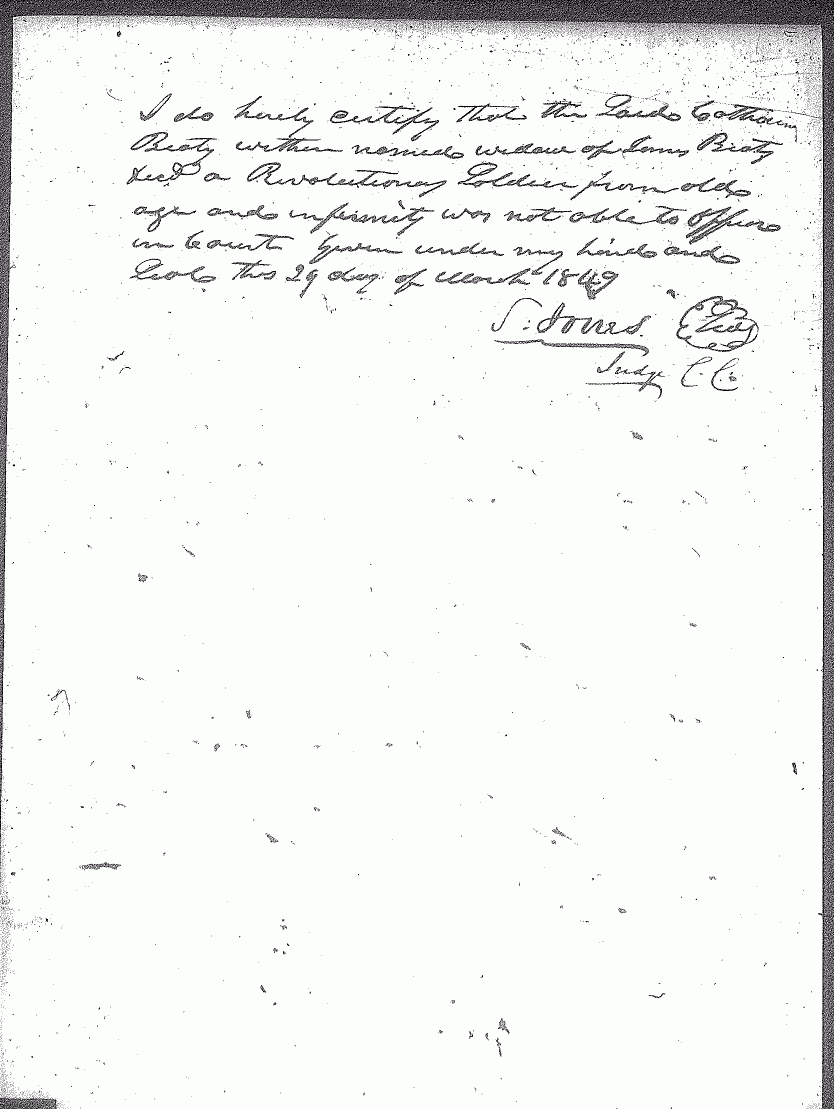 I do hereby certify that the Said Catharin
Beaty within named widow of James Beaty
decd a Revolutionary Soldier from old
age and infirmity was not able to appear
in Court Given under my hand and
Seal this 29 day of March 1849
S. Jones. Seal
Judge C. C.